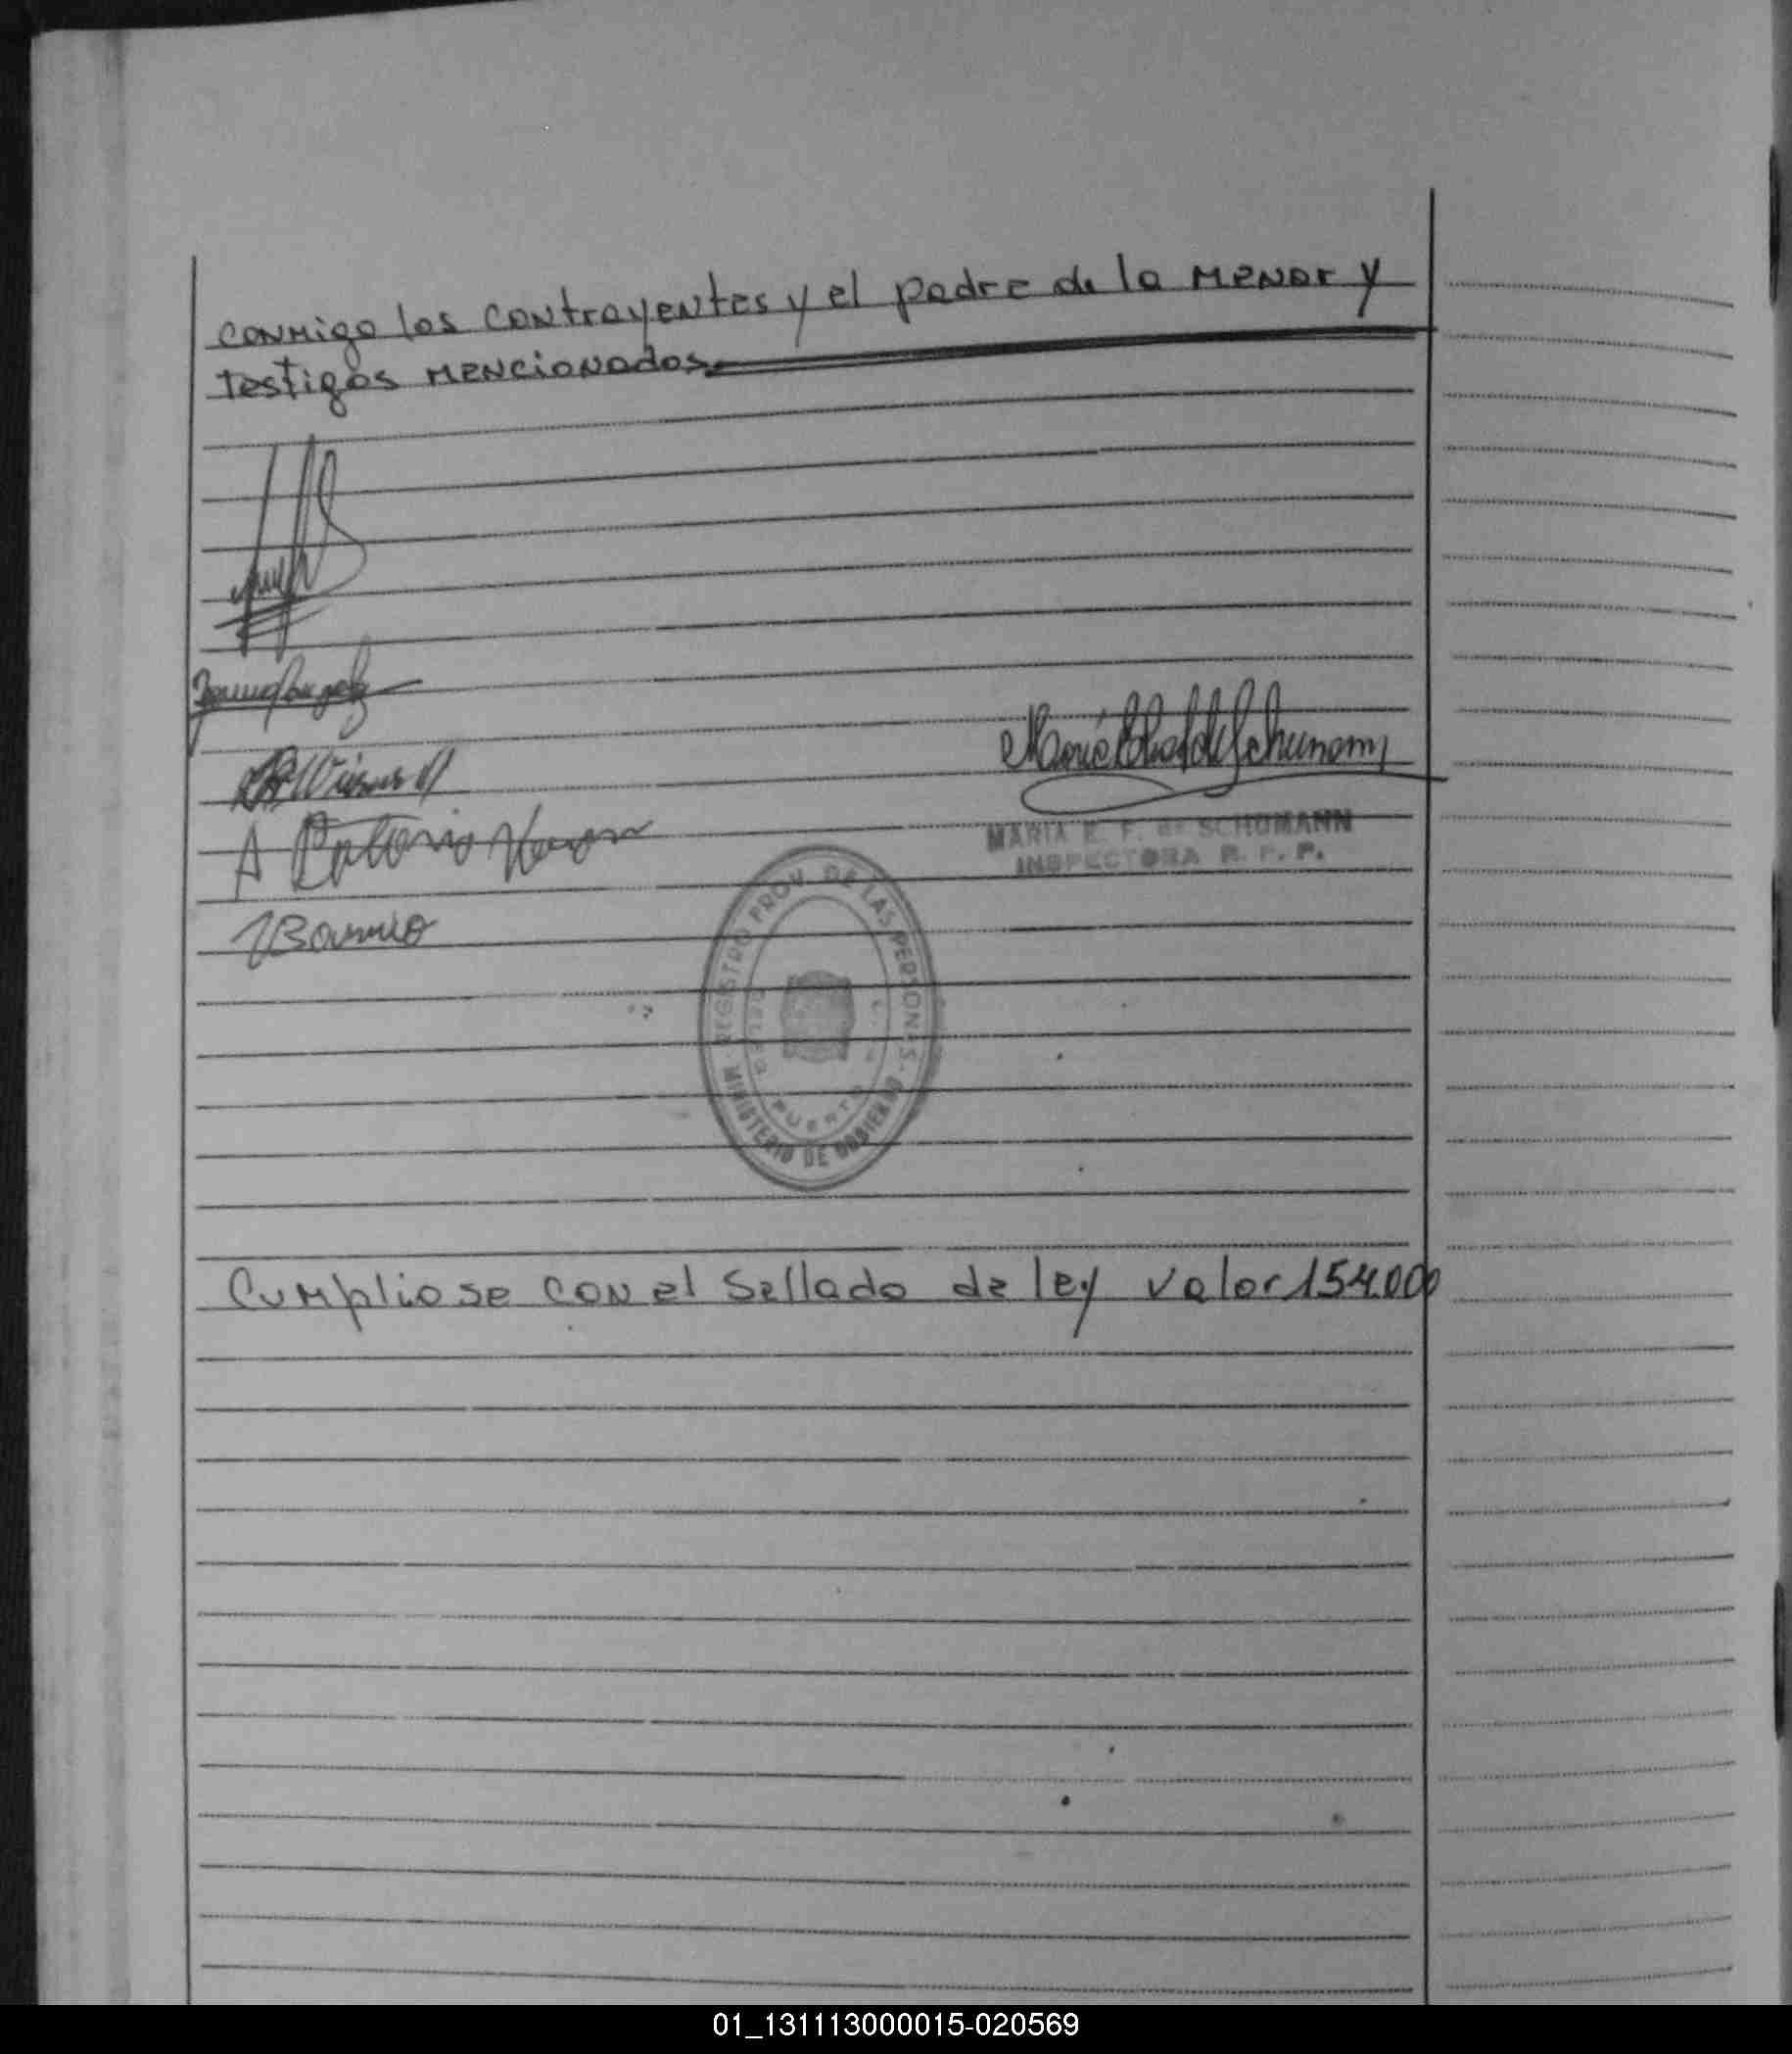 conmigo los contrayentes y el padre de la menor y
testigos mencionados
MARIA E. F. de SCHUMANN
INSPECTORA R. P. P.
REGISTRO PROV. DE LAS PERSONAS
MINISTERIO DE GOBIERNO
PUERTO
Cumpliose con el sellado de ley valor 154.000
01_131113000015-020569